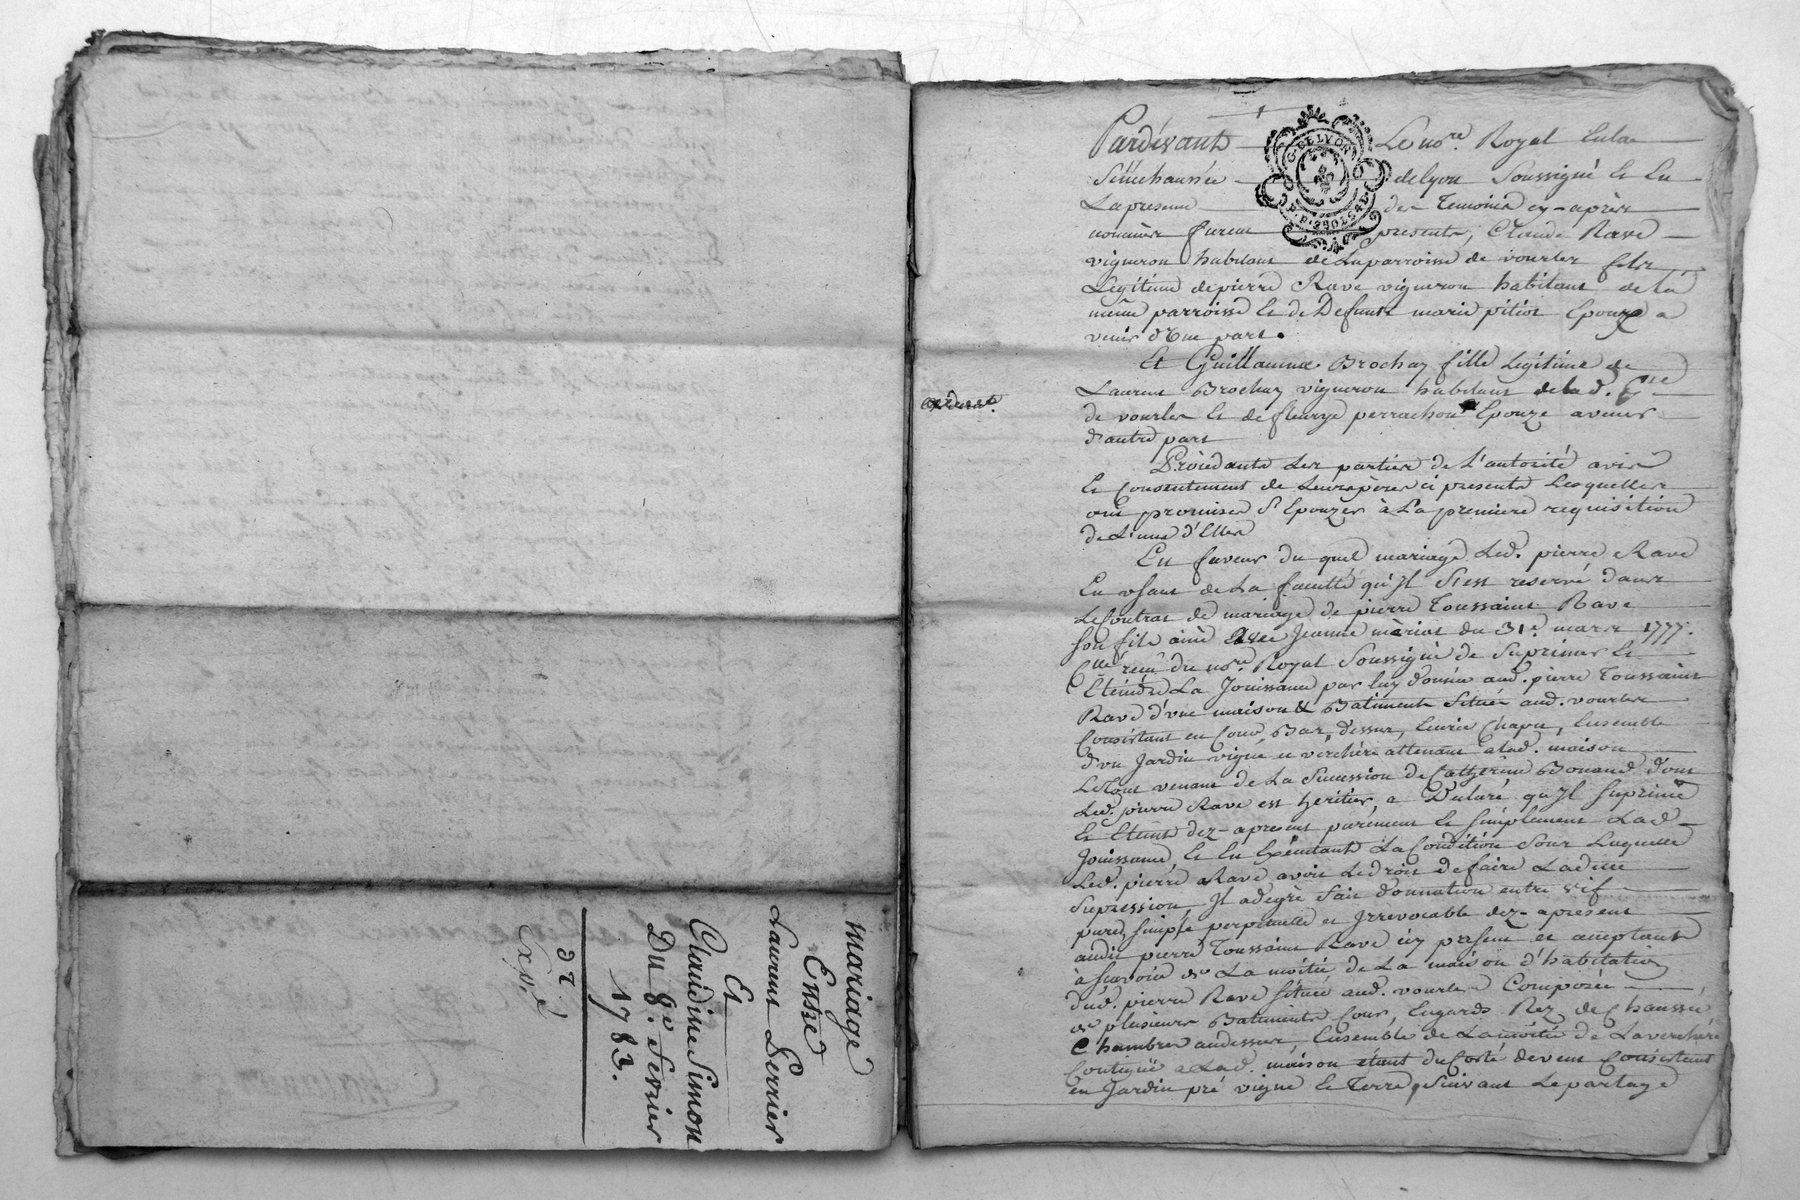 mariage
Entre
Laurent Perrier
Et
Claudine Simon
Du 8e. Fevrier
1783.
Pardevant Le nore. Royal Enla
Sénéchaussée de lyon Soussigné Et En
La presence des Temoins cy-après
nommés furent presents, Claude Rave
vigneron habitant de La parroisse de vourles fils
Legitime de pierre Rave vigneron habitant de la
même parroisse Et de Defunte marie pitiot Epoux a
venir d'Une part.
Et Guillaume Brochay fille Legitime de
Laurent Brochay vigneron habitant de lad.
de vourles Et de fleurye perrachon Epouze avenir
d'autre part
Procedants Les parties de L'autorité avis
Et Consentement de Leurs pères ci presents Lesquelles
ont promises S'Epouzer à La premiere requisition
de L'une d'Elles
En faveur du quel mariage Led. pierre Rave
En usant de La faculté qu'Il S'est reservé dans
Le Contrat de mariage de pierre Toussaint Rave
Son fils ainé avec Jeanne mériat du 31e. mars 1777.
reçu du nore. Royal Soussigné de Suprimer Et
Eteindre La Jouissance par luy donnée aud. pierre Toussaint
Rave d'une maison & Batiments Situés aud. vourles
Consistant en Cour, Bas, dessus, Ecurie Chapit, Ensemble
d'un Jardin vigne et verchère attenant a lad. maison
Le Tout venant de La Succession de Catherine Bonand dont
Led. pierre Rave est heritier, a Declaré qu'Il Suprime
Et Eteint dez-apresent purement Et Simplement Lad.
Jouissance, Et En Exécutant La Condition Sous Laquelle
Led. pierre Rave avoit Le droit de faire Ladite
Supression Il a de gré fait donnation entre vif
pure, Simple perpetuelle et Irrevocable dez-apresent
audit pierre Toussaint Rave icy présent et acceptant
à Savoir de La moitié de La maison d'habitation
dud. pierre Rave Située aud. vourles Composée
de plusieurs Batiments Cour, Engards Rez de Chaussée
Chambres audessus, Ensemble de La moitié de La verchère
Contiguë a Lad. maison étant du Coté de vent Consistant
en Jardin pré vigne Et Terre, Suivant Le partage